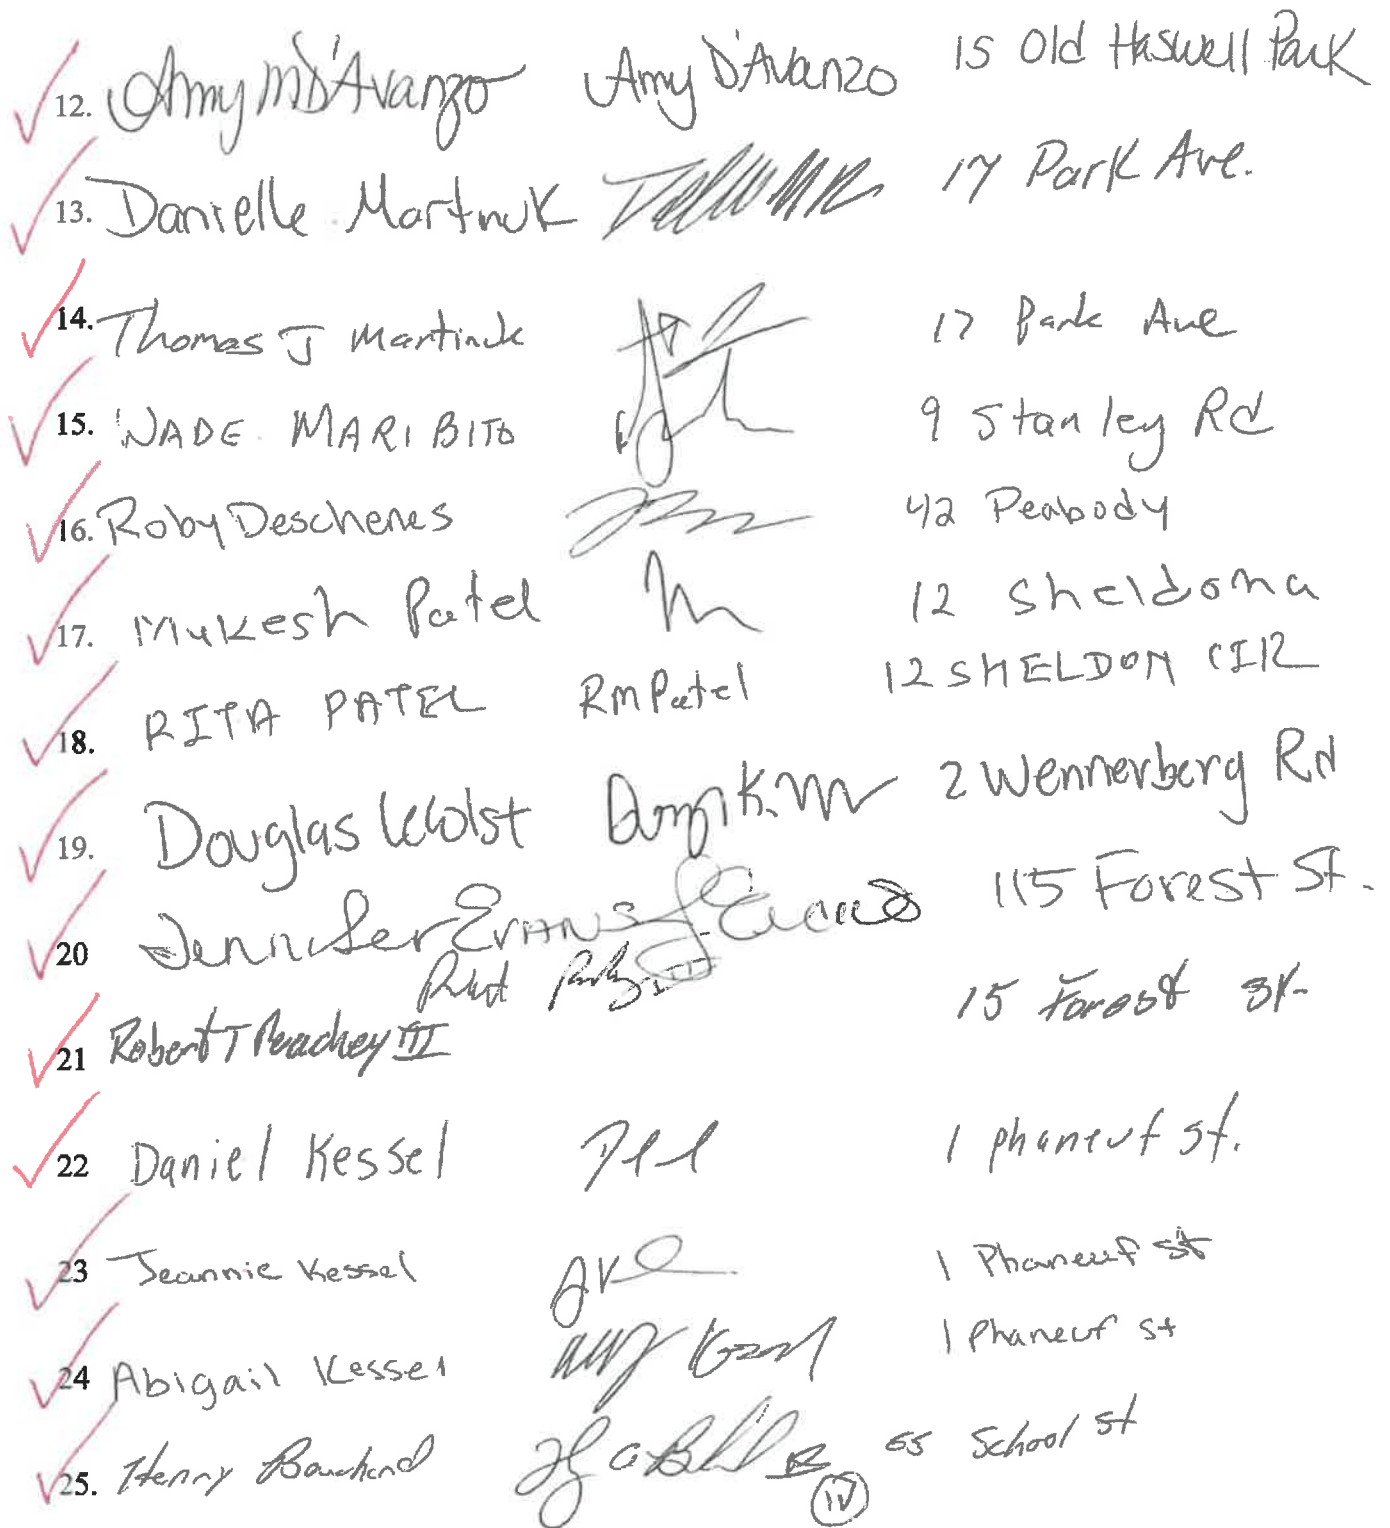 12. Amy M D'Avanzo Amy D'Avanzo 15 Old Haswell Park
13. Danielle Martinuk 17 Park Ave.
14. Thomas J Martinuk 17 Park Ave
15. WADE MARIBITO 9 Stanley Rd
16. Roby Deschenes 42 Peabody
17. Mukesh Patel 12 Sheldona
18. RITA PATEL RM Patel 12 SHELDON CIR
19. Douglas Wolst 2 Wennerberg Rd
20 Jennifer Evans J Evans 115 Forest St.
21 Robert T Peachey III 15 Forest St.
22 Daniel Kessel 1 phaneuf st.
23 Jeannie Kessel 1 Phaneuf st
24 Abigail Kessel 1 Phaneuf st
25. Henry Bouchard 55 School st
IV